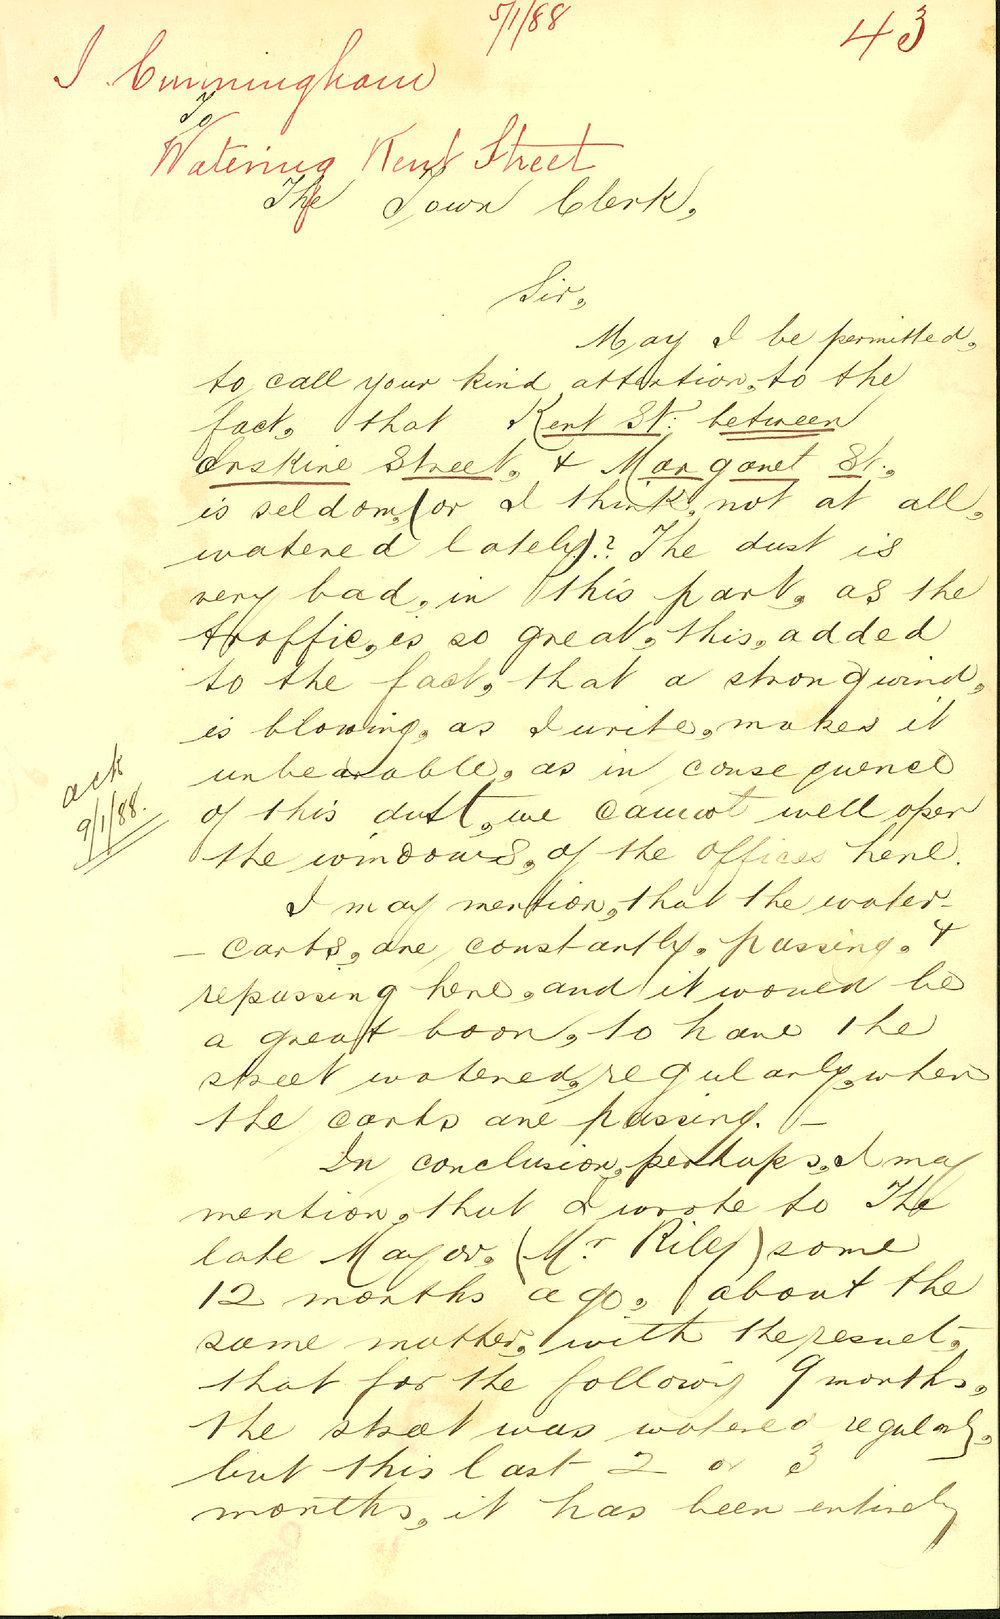 5/1/88
43
I Cunningham
To
Watering Kent Street
The Town Clerk,
Sir,
May I be permitted,
to call your kind attention, to the
fact, that Kent St: between
Erskine Street, & Margaret St.,
is seldom, (or I think, not at all,
watered lately)? The dust is
very bad, in this part, as the
traffic, is so great, this, added
to the fact, that a strong wind,
is blowing, as I write, makes it
unbearable, as in consequence
of this dust, we cannot well open
the windows, of the offices here.
ack
9/1/88.
I may mention, that the water-
- carts, are constantly, passing, &
repassing here, and it would be
a great boon, to have the
street watered, regularly, when
the carts are passing. -
In conclusion, perhaps, I may
mention, that I wrote to The
late Mayor, (Mr Riley) some
12 months ago, about the
same matter, with the result,
that for the following 9 months,
the street was watered regularly,
but this last 2 or 3
months, it has been entirely